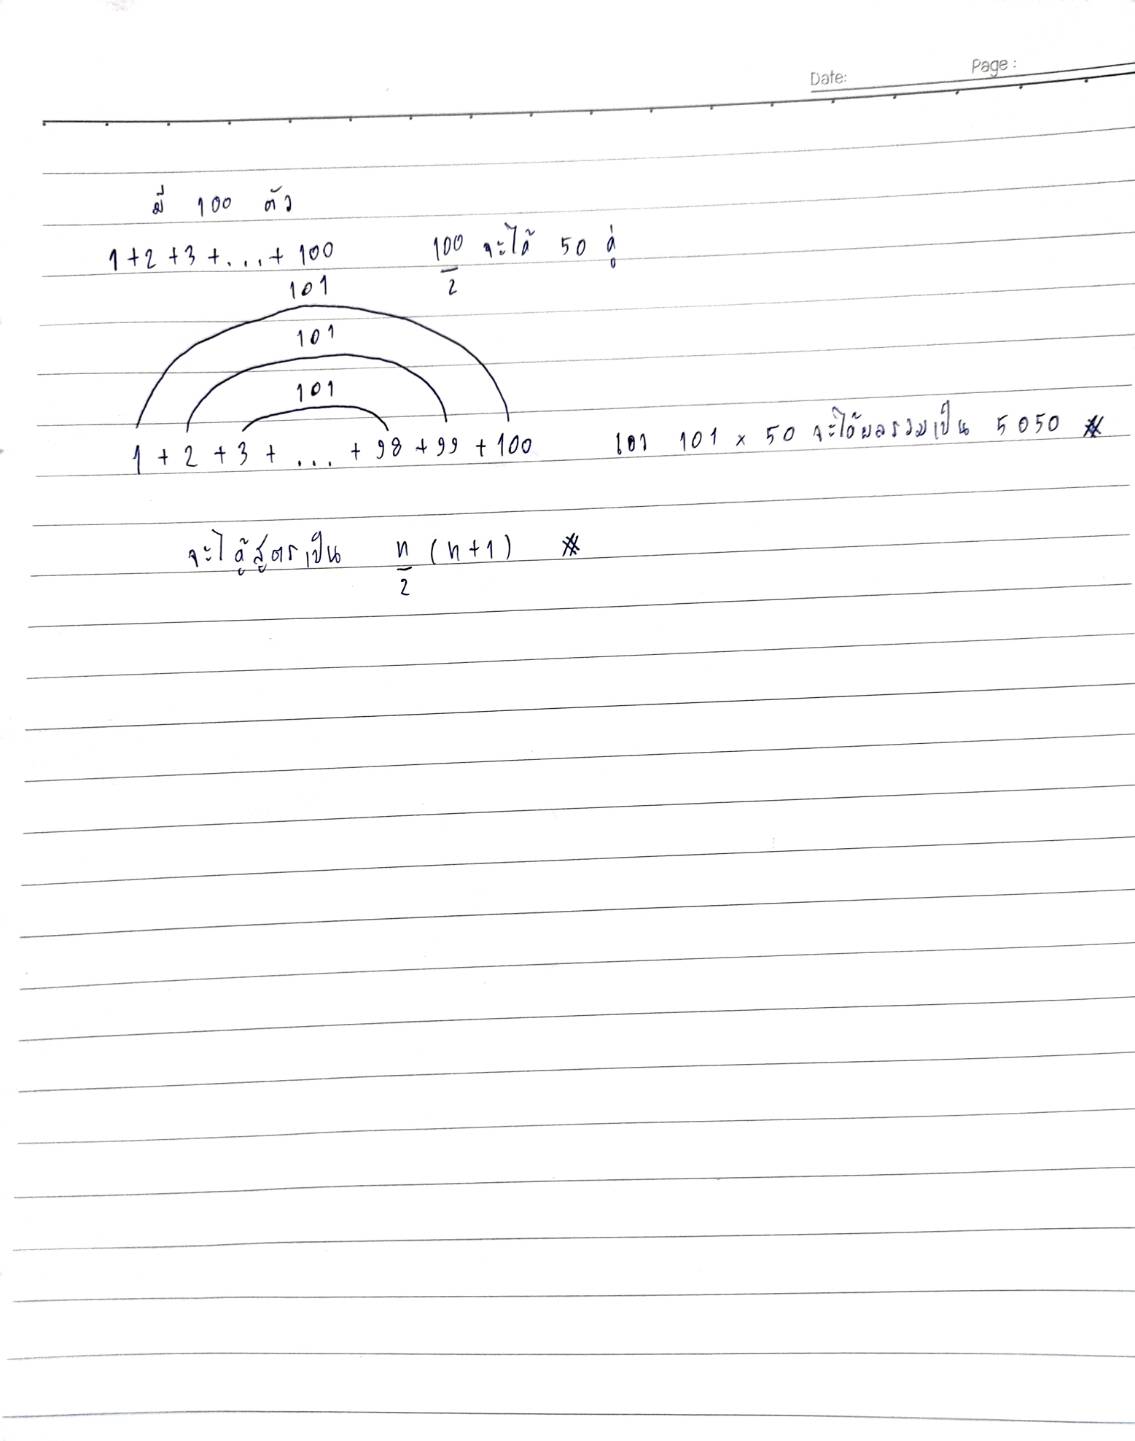 Date: Page :
มี 100 ตัว
1+2+3+...+100 100/2 จะได้ 50 คู่
101
101
101
1+2+3+...+98+99+100 เอา 101 × 50 จะได้ผลรวมเป็น 5050 #
จะได้สูตรเป็น n/2 (n+1) #